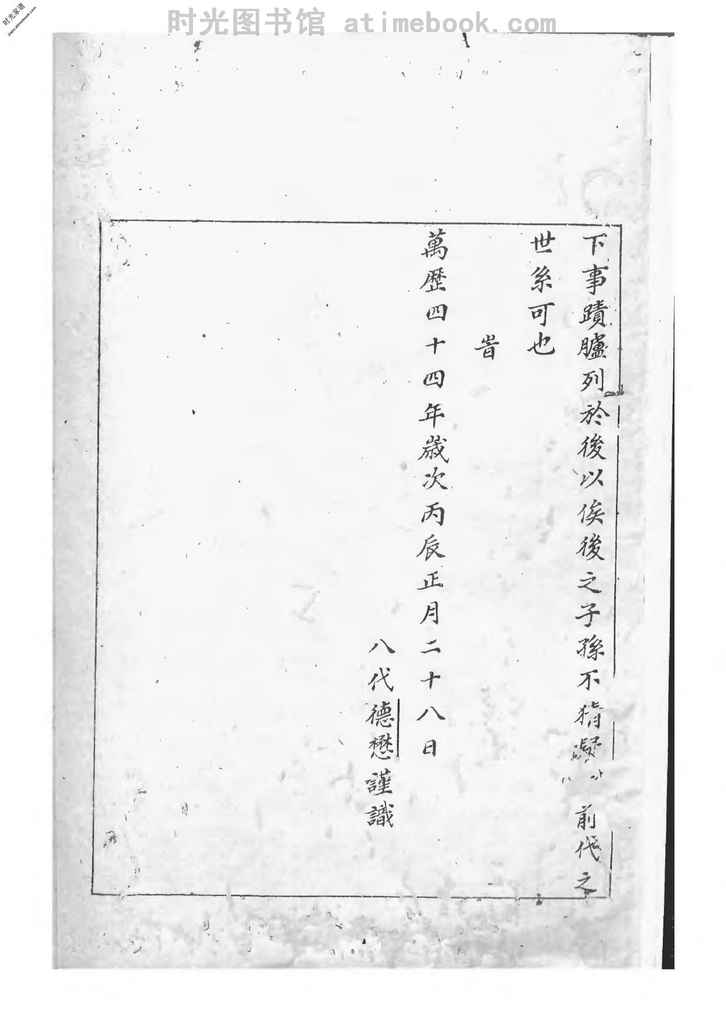 时光图书馆 atimebook.com
时光家谱
下事蹟臚列於後以俟後之子孫不猜凝前代之
世系可也
旹
萬歷四十四年歲次丙辰正月二十八日
八代德懋謹識